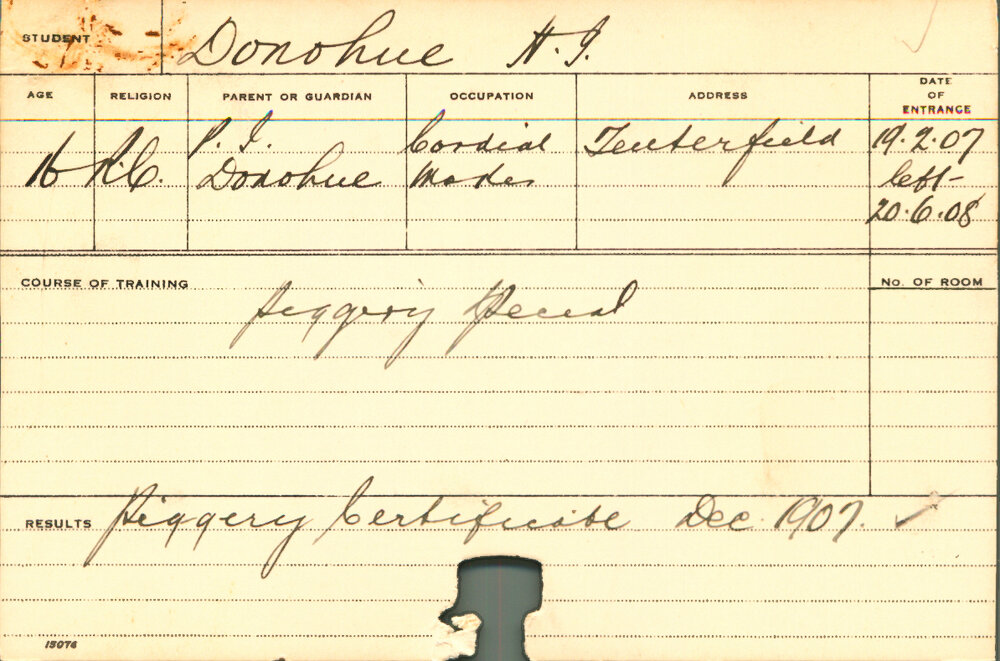 STUDENT Donohue H. J.
AGE RELIGION PARENT OR GUARDIAN OCCUPATION ADDRESS DATE OF ENTRANCE
16 R.C. P. J. Donohue Cordial Maker Tenterfield 19.2.07
left-
20.6.08
COURSE OF TRAINING No. OF ROOM
Piggery Special
RESULTS Piggery Certificate Dec. 1907. ✓
15074